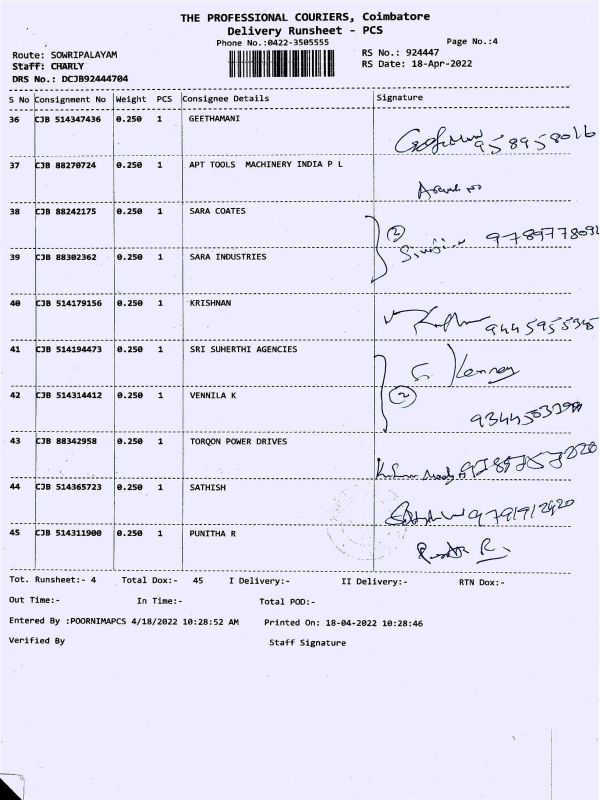 THE PROFESSIONAL COURIERS, Coimbatore
Delivery Runsheet - PCS
Phone No.:0422-3505555
Page No.:4
Route: SOWRIPALAYAM
RS No.: 924447
Staff: CHARLY
RS Date: 18-Apr-2022
DRS No.: DCJB92444704
S No Consignment No Weight PCS Consignee Details Signature
36 CJB 514347436 0.250 1 GEETHAMANI
37 CJB 88270724 0.250 1 APT TOOLS MACHINERY INDIA P L
38 CJB 88242175 0.250 1 SARA COATES 2
39 CJB 88302362 0.250 1 SARA INDUSTRIES
40 CJB 514179156 0.250 1 KRISHNAN
41 CJB 514194473 0.250 1 SRI SUHERTHI AGENCIES
42 CJB 514314412 0.250 1 VENNILA K 2
43 CJB 88342958 0.250 1 TORQON POWER DRIVES
44 CJB 514365723 0.250 1 SATHISH
45 CJB 514311900 0.250 1 PUNITHA R
Tot. Runsheet:- 4 Total Dox:- 45 I Delivery:- II Delivery:- RTN Dox:-
Out Time:- In Time:- Total POD:-
Entered By :POORNIMAPCS 4/18/2022 10:28:52 AM Printed On: 18-04-2022 10:28:46
Verified By Staff Signature